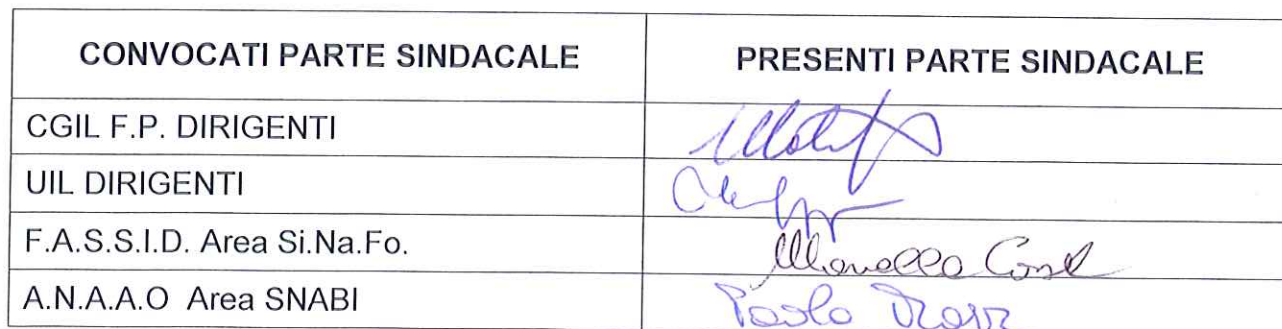 CONVOCATI PARTE SINDACALE PRESENTI PARTE SINDACALE
CGIL F.P. DIRIGENTI
UIL DIRIGENTI
F.A.S.S.I.D. Area Si.Na.Fo.
A.N.A.A.O Area SNABI Paolo